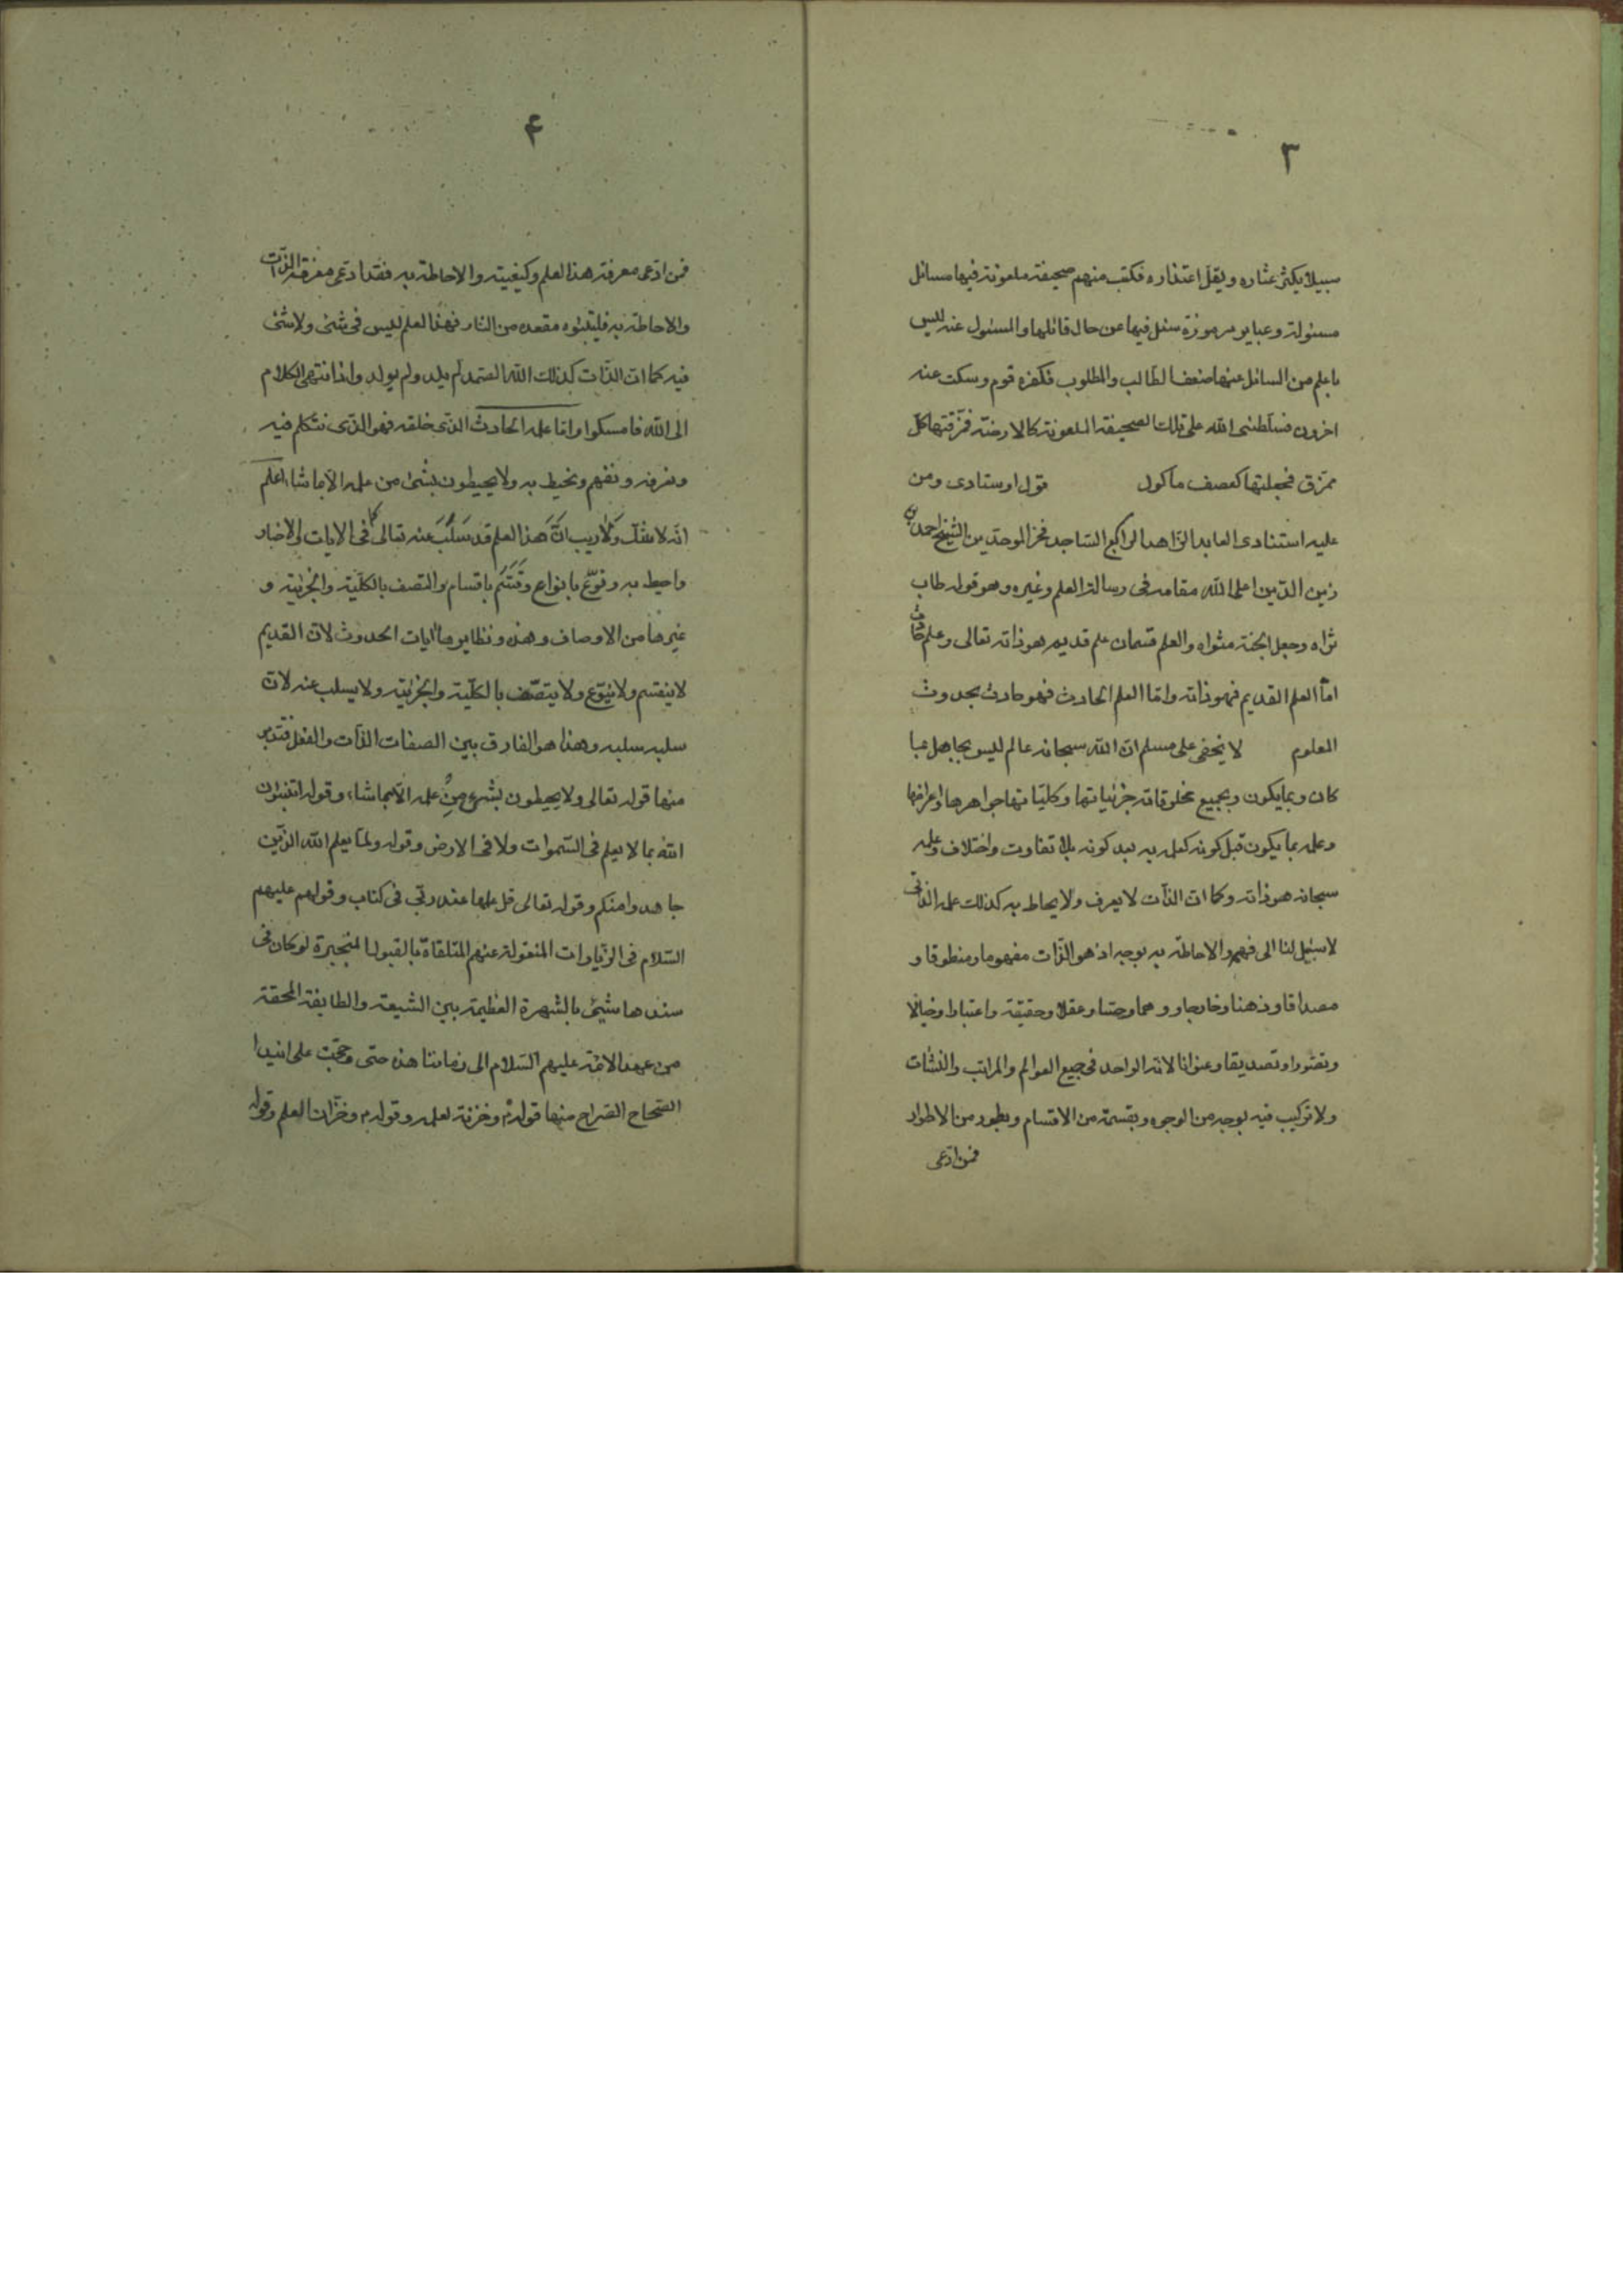 ٣
سبيلا يكثر عثاره ويقل اعتذاره فكتب منهم صحيفة ملعونة فيها مسائل
مسئولة وعباير مرموزة سئل فيها عن حال قائلها والمسئول عنه ليس
باعلم من السائل عنها ضعف الطالب والمطلوب فكفره قوم وسكت عنه
اخرون فسلطنى الله على تلك الصحيفة الملعونة كالارضة فمزقتها كل
ممزق فجعلتها كعصف ماكول قول اوستادى ومن
عليه استنادى العابد الزاهد الراكع الساجد فخر الموحدين الشيخ احمد بن
زين الدين اعلى الله مقامه فى رسالة العلم وغيره وهو قوله طاب
ثراه وجعل الجنة مثواه والعلم قسمان علم قديم هو ذاته تعالى وعلم حادث
امّا العلم القديم فهو ذاته وامّا العلم الحادث فهو حادث بحدوث
المعلوم لا يخفى على مسلم انّ الله سبحانه عالم ليس بجاهل بما
كان وبما يكون وبجميع مخلوقاته جزئياتها وكلياتها جواهرها واعراضها
وعلمه بما يكون قبل كونه كعلمه به بعد كونه بلا تفاوت واختلاف وعلمه
سبحانه هو ذاته وكما ان الذّات لا يعرف ولا يحاط به كذلك علمه الذاتى
لا سبيل لنا الى فهمه والاحاطة به بوجه اذ هو الذّات مفهوما ومنطوقا و
مصداقا وذهنا وخارجا ووهما وحسّا وعقلا وحقيقة واعتبارا وخيالا
وتصورا وتصديقا وعنوانا لانه الواحد فى جميع العوالم والمراتب والنشات
ولا تركيب فيه بوجه من الوجوه وبقسمة من الاقسام وبطور من الاطوار
فمن ادّعى
۴
فمن ادّعى معرفة هذا العلم وكيفيته والاحاطة به فقد ادّعى معرفة الذّات
والاحاطة به فليتبئوه مقعده من النّار فهذا العلم ليس فى شئ ولا شئ
فيه كما انّ الذّات كذلك الله الصّمد لم يلد ولم يولد واذا انتهى الكلام
الى الله فامسكوا وامّا علمه الحادث الذى خلقه فهو الذى نتكلم فيه
ونعرفه ونفهم ونحيط به ولا يحيطون بشئ من علمه الّا بما شاء اعلم
انّه لا شكّ ولا ريب انّ هذا العلم قد سلب عنه تعالى كما فى الايات والاخبار
واحيط به ونوّع بانواع وقسّم باقسام واتصف بالكليّة والجزئيّة و
غيرها من الاوصاف وهذه ونظايرها ايات الحدوث لانّ القديم
لا ينقسم ولا يتنوّع ولا يتصّف بالكلّية والجزئيّة ولا يسلب عنه لانّ
سلبه سلبه وهذا هو الفارق بين الصفات الذّات والفعل فتدبر
منها قوله تعالى ولا يحيطون بشئ من علمه الّا بما شاء وقوله اتنبئون
الله بما لا يعلم فى السّموات ولا فى الارض وقوله ولمّا يعلم الله الذّين
جاهدوا منكم وقوله تعالى قل علمها عند ربّى فى كتاب وقولهم عليهم
السّلام فى الزّيارات المنقولة عنهم المتلقاة بالقبول المنجبرة لو كان فى
سندها شئ بالشهرة العظيمة بين الشيعة والطايفة المحقة
من عهد الائمة عليهم السّلام الى زماننا هذه حتى رجحت على
الصّحاح الصّراح منها قولهم وخزنة لعلمه وقولهم وخزّان العلم وقوله